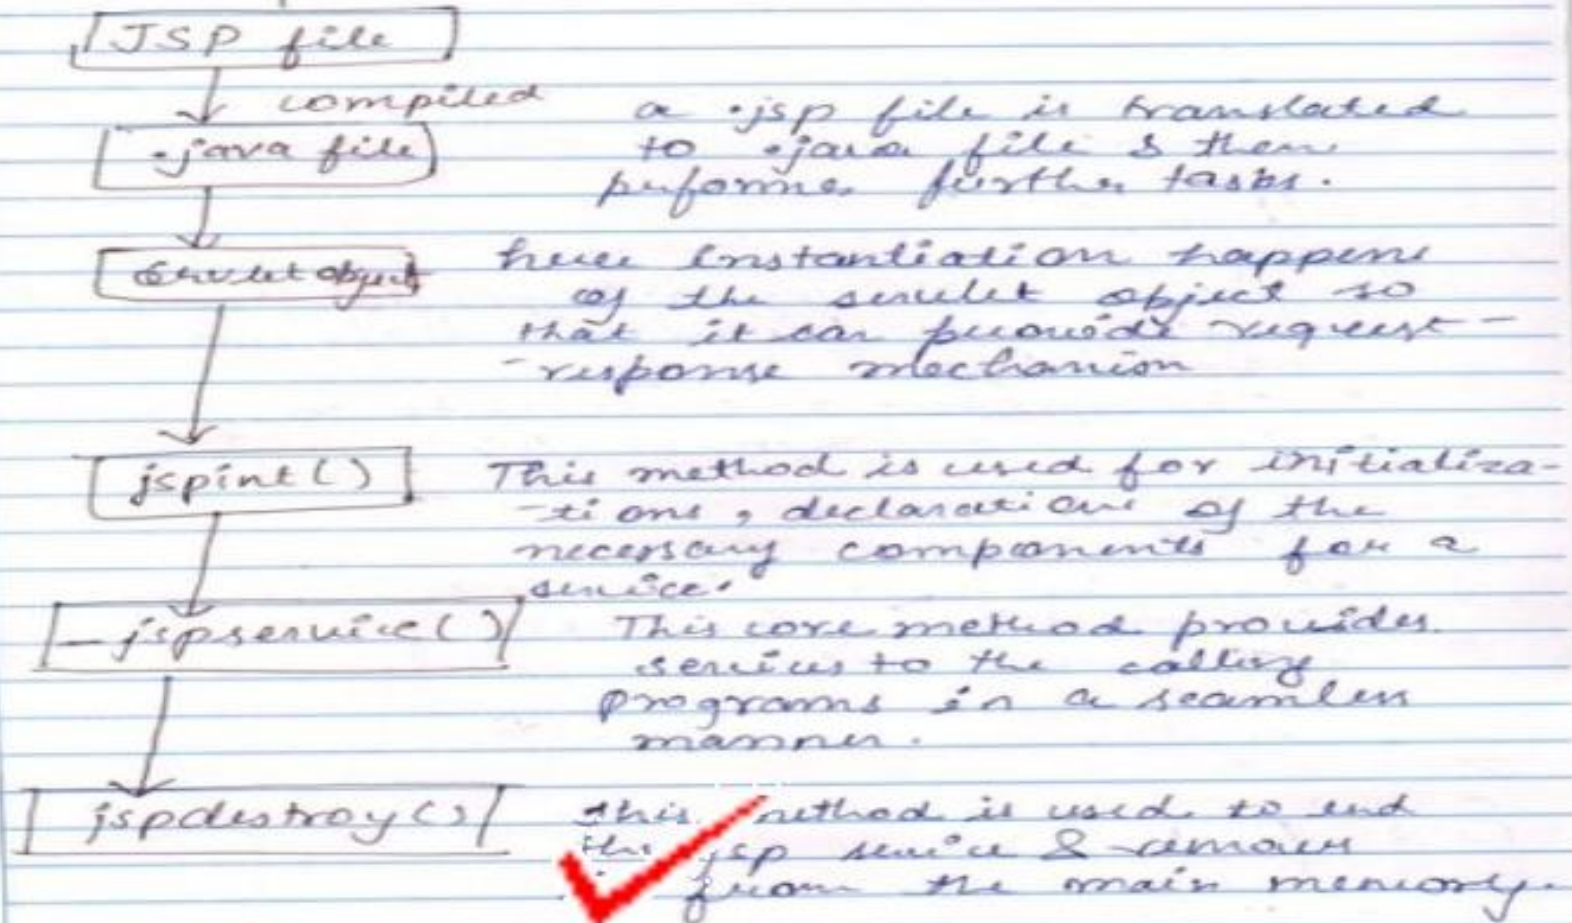 JSP file
compiled
.java file
a .jsp file is translated
to .java file & then
performes further tasks.
Servlet object
here Instantiation happens
of the servlet object so
that it can provide request-
-response mechanism
jspint()
This method is used for initializa-
-tions, declarations of the
necessary components for a
service.
_jspservice()
This core method provides
services to the calling
programs in a seamless
manner.
jspdestroy()
this method is used to end
the jsp service & removes
from the main memory.